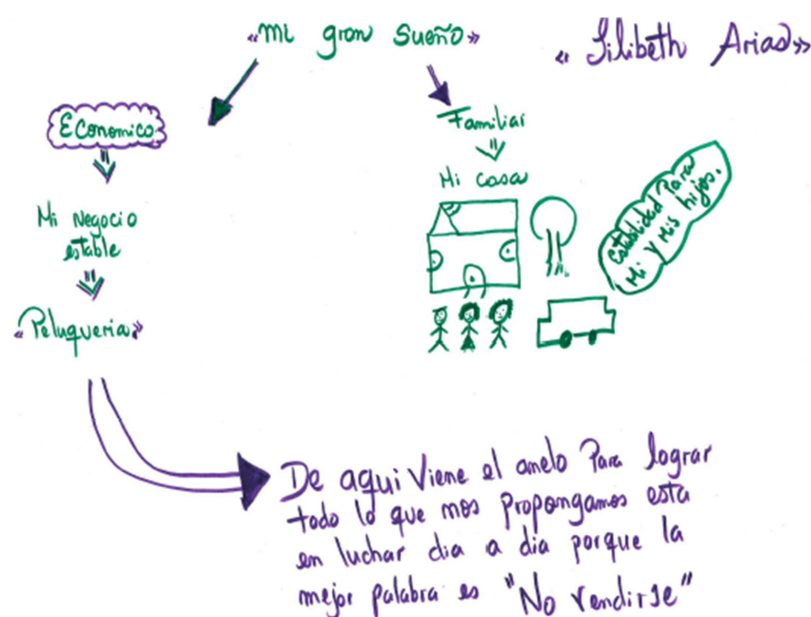 «Mi gran Sueño»
« Lilibeth Arias»
Economico
Mi Negocio
estable
«Peluqueria»
Familiar
Mi casa
estabilidad Para
Mi Y Mis hijos.
De aqui Viene el anelo Para lograr
todo lo que nos propongamos esta
en luchar dia a dia porque la
mejor palabra es "No rendirse"